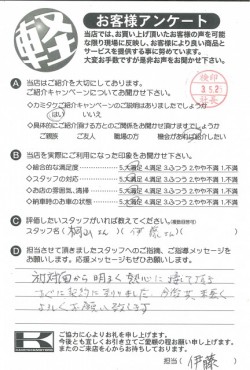 軽
お客様アンケート
当店では、お買い上げ頂いたお客様の声を可能
な限り現場に反映し、お客様により良い商品と
サービスを提供する事に努めています。
大変お手数ですが是非お声をお聞かせ下さい。
検印
3.5.2
店長
A 当店はご紹介を大切にしております。
ご紹介キャンペーンについてお聞かせ下さい。
◇カミタケご紹介キャンペーンのご説明はありましたでしょうか
はい いいえ
◇具体的にご紹介頂ける方とのご関係をお聞かせ頂けますでしょうか
ご親族 ご友人 職場の方 機会があればご紹介
B 当店を実際にご利用になった印象をお聞かせ下さい。
◇総合的な満足度 5.大満足 4.満足 3.ふつう 2.やや不満 1.不満
◇スタッフの対応 5.大満足 4.満足 3.ふつう 2.やや不満 1.不満
◇お店の雰囲気、清掃 5.大満足 4.満足 3.ふつう 2.やや不満 1.不満
◇納車時のお車の状態 5.大満足 4.満足 3.ふつう 2.やや不満 1.不満
C 評価したいスタッフがいれば教えてください。(複数回答可)
スタッフ名( さん )( 伊藤さん )
D 担当させて頂きましたスタッフへのご指摘、ご指導メッセージを
お願いします。応援メッセージもぜひお願いします。
初対面から明るく熱心に接して頂き
すぐに契約に至りました。今後共、末長く
よろしくお願い致します
K
ご協力に心よりお礼を申し上げます。
今後とも宜しくお引き立てご愛顧の程お願い申し上げます。
またのご来店を心からお待ちしております。
担当( 伊藤 )